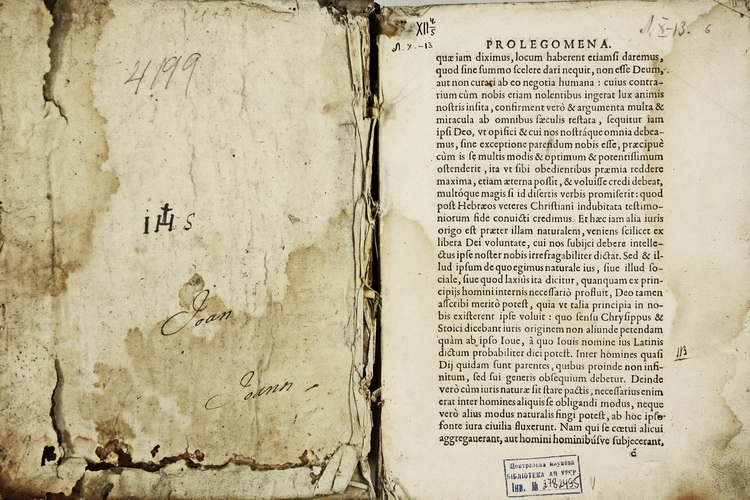 4199
IHS
Joan
Joann
XII 4/5
Л. X.-13
Л. X-13. 6
PROLEGOMENA.
quæ iam diximus, locum haberent etiamsi daremus,
quod sine summo scelere dari nequit, non esse Deum,
aut non curari ab eo negotia humana : cuius contra-
rium cùm nobis etiam nolentibus ingerat lux animis
nostris insita, confirment verò & argumenta multa &
miracula ab omnibus sæculis testata, sequitur iam
ipsi Deo, vt opifici & cui nos nostráque omnia debea-
mus, sine exceptione parendum nobis esse, præcipuè
cùm is se multis modis & optimum & potentissimum
ostenderit, ita vt sibi obedientibus præmia reddere
maxima, etiam æterna possit, & voluisse credi debeat,
multóque magis si id disertis verbis promiserit : quod
post Hebræos veteres Christiani indubitata testimo-
niorum fide conuicti credimus. Et hæc iam alia iuris
origo est præter illam naturalem, veniens scilicet ex
libera Dei voluntate, cui nos subijci debere intelle-
ctus ipse noster nobis irrefragabiliter dictat. Sed & il-
lud ipsum de quo egimus naturale ius, siue illud so-
ciale, siue quod laxiùs ita dicitur, quanquam ex prin-
cipijs homini internis necessariò profluit, Deo tamen
asscribi meritò potest, quia vt talia principia in no-
bis existerent ipse voluit : quo sensu Chrysippus &
Stoici dicebant iuris originem non aliunde petendam
quàm ab ipso Ioue, à quo Iouis nomine ius Latinis
dictum probabiliter dici potest. Inter homines quasi
Dij quidam sunt parentes, quibus proinde non infi-
nitum, sed sui generis obsequium debetur. Deinde
verò cùm iuris naturæ sit stare pactis, necessarius enim
erat inter homines aliquis se obligandi modus, neque
verò alius modus naturalis fingi potest, ab hoc ipso
fonte iura ciuilia fluxerunt. Nam qui se cœtui alicui
aggregauerant, aut homini hominibúsve subjecerant,
é
113
Центральна наукова
БІБЛІОТЕКА АН УРСР
Інв. №